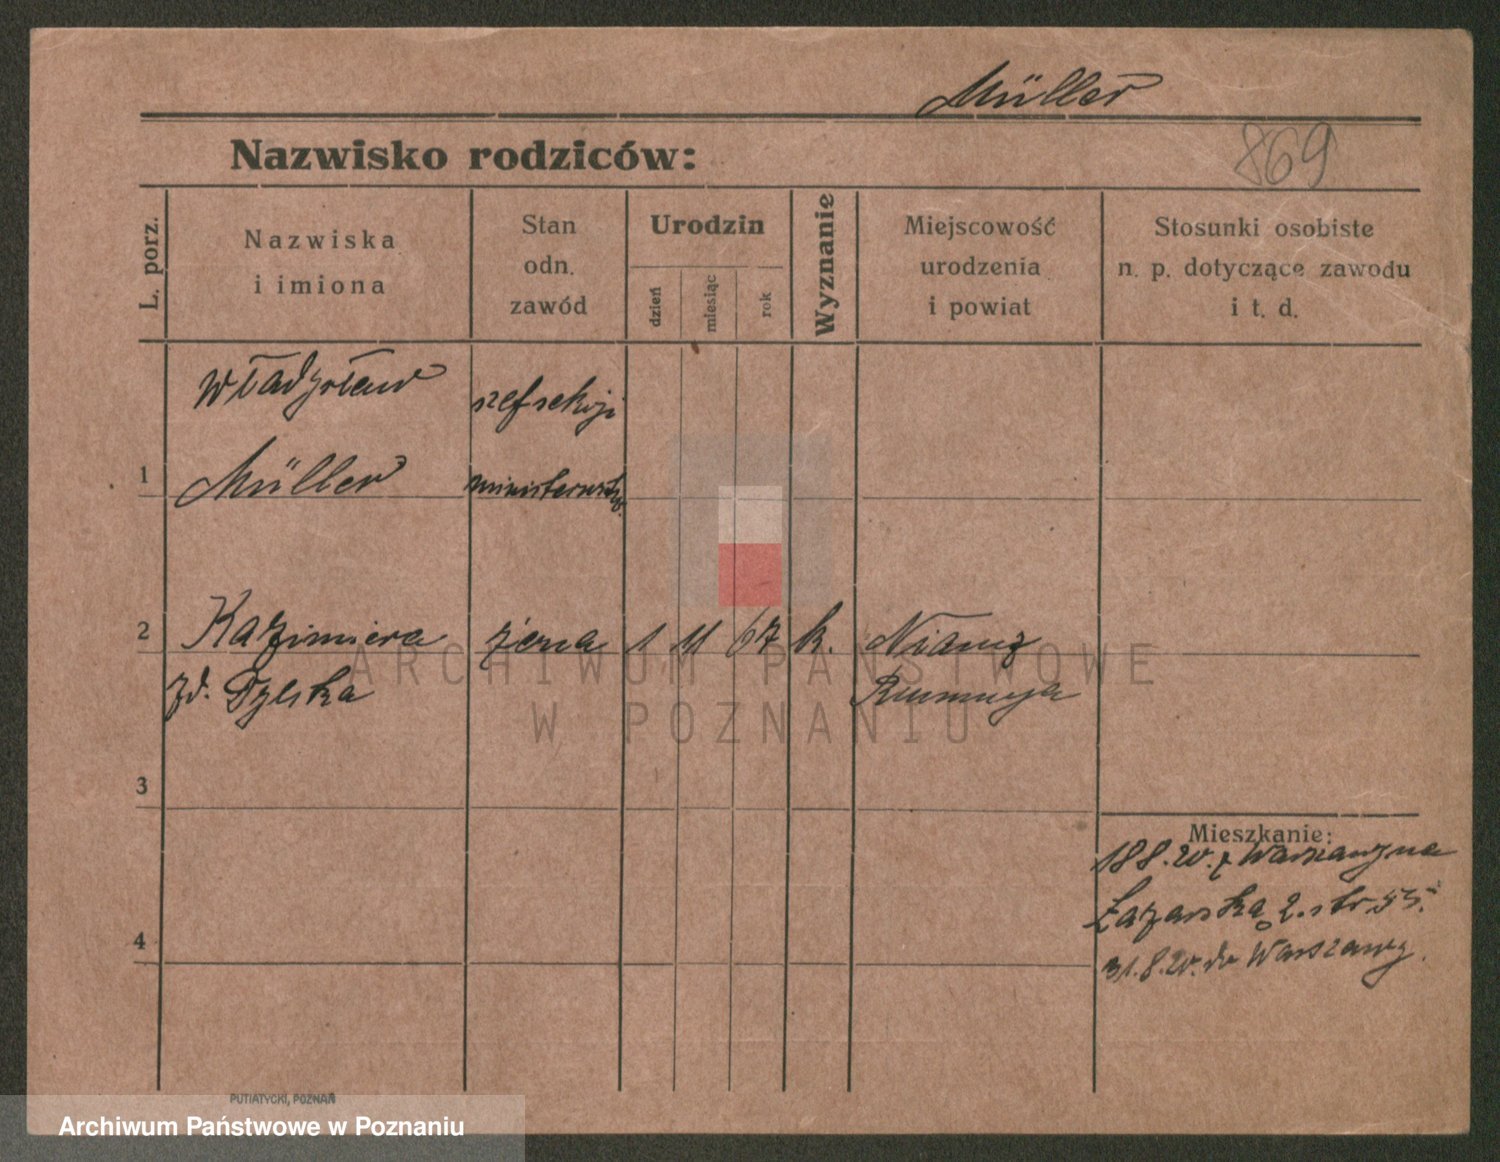 Müller
869
Nazwisko rodziców:
L. porz.
Nazwiska
i imiona
Stan
odn.
zawód
Urodzin
dzień
miesiąc
rok
Wyznanie
Miejscowość
urodzenia
i powiat
Stosunki osobiste
n. p. dotyczące zawodu
i t. d.
Władysław szef sekcji
1 Müller ministerstw.
2 Kazimiera żena 1 11 67 k. Niamz
zd. Dylska Rumunja
3
4
Mieszkanie:
18 8.20. z Warszawy na
Łazarską 2. str 55.
31.8.20. do Warszawy.
ARCHIWUM PAŃSTWOWE
W POZNANIU
PUTIATYCKI, POZNAŃ
Archiwum Państwowe w Poznaniu